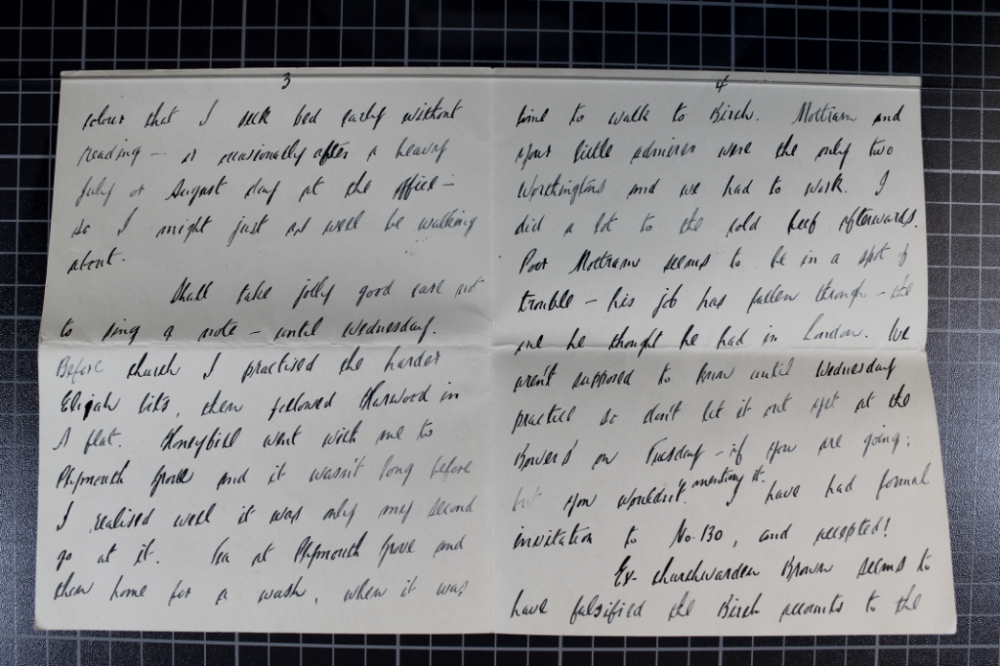 3
colour that I seek bed early without
reading — or occasionally after a heavy
July or August day at the office —
so I might just as well be walking
about.
Shall take jolly good care not
to sing a note — until Wednesday.
Before church I practised the harder
Elijah bits, then followed Harwood in
A flat. Honeybill went with me to
Plymouth Grove and it wasn't long before
I realised well it was only my second
go at it. Tea at Plymouth Grove and
then home for a wash, when it was
4
time to walk to Birch. Mottram and
your little admirer were the only two
Worthingtons and we had to work. I
did a lot to the cold beef afterwards.
Poor Mottram seems to be in a spot of
trouble — his job has fallen through — the
one he thought he had in London. We
aren't supposed to know until Wednesday
practice so don't let it out yet at the
Bowers' on Tuesday — if you are going;
but you wouldn't mentioning it. I have had formal
invitation to No. 130, and accepted!
Ex-churchwarden Brown seems to
have falsified the Birch accounts to the